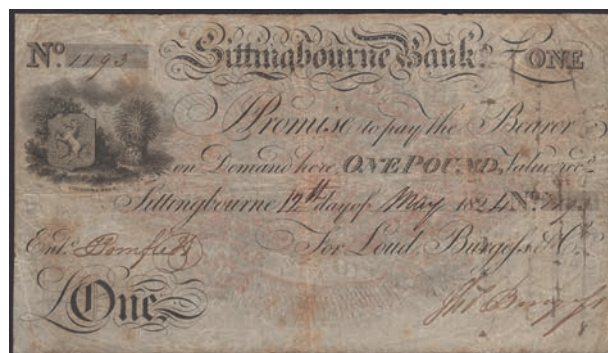 No. 1193 Sittingbourne Bank. £ ONE
I Promise to pay the Bearer
on Demand here ONE POUND, Value recd.
Sittingbourne 12th day of May 1824 No. 1193
Entd. For Loud, Burgess & Co.
£ One